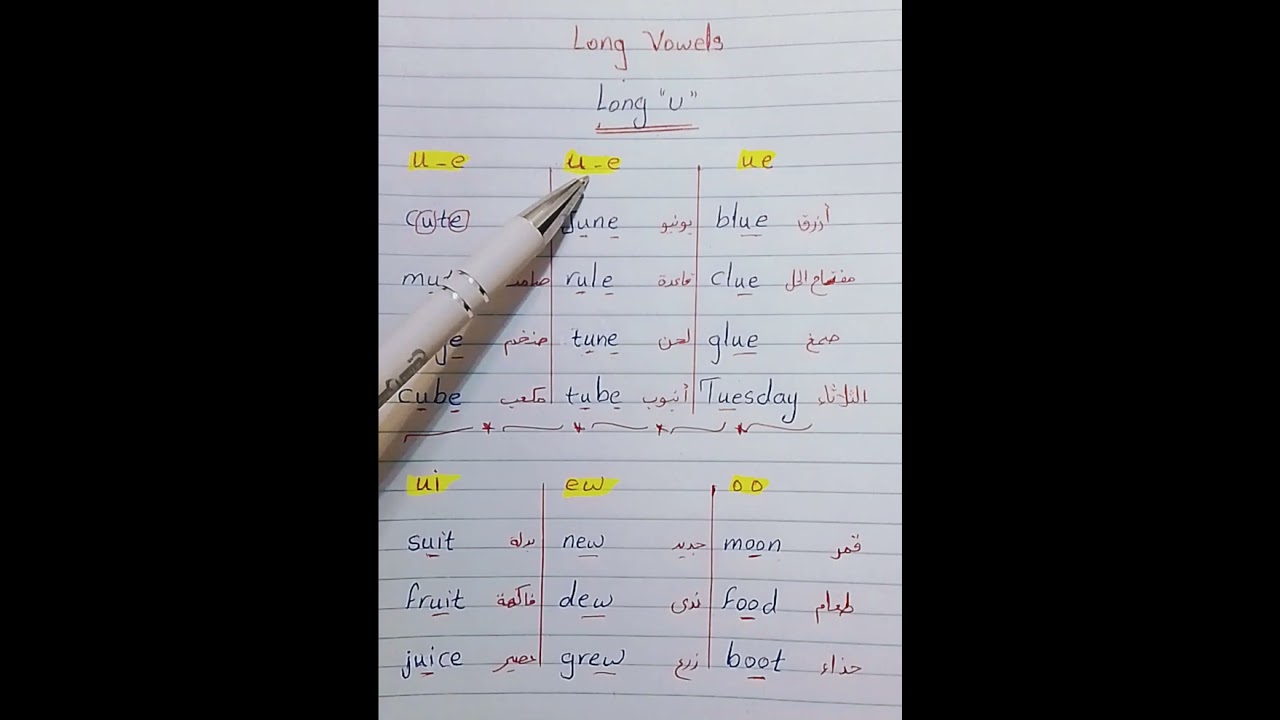 Long Vowels
Long "U"
u_e u_e ue
cute June يونيو blue أزرق
صامت rule قاعدة clue مفتاح الحل
ضخم tune لحن glue صمغ
cube مكعب tube أنبوب Tuesday الثلاثاء
ui ew oo
suit بدلة new جديد moon قمر
fruit فاكهة dew ندى food طعام
juice عصير grew زرع boot حذاء